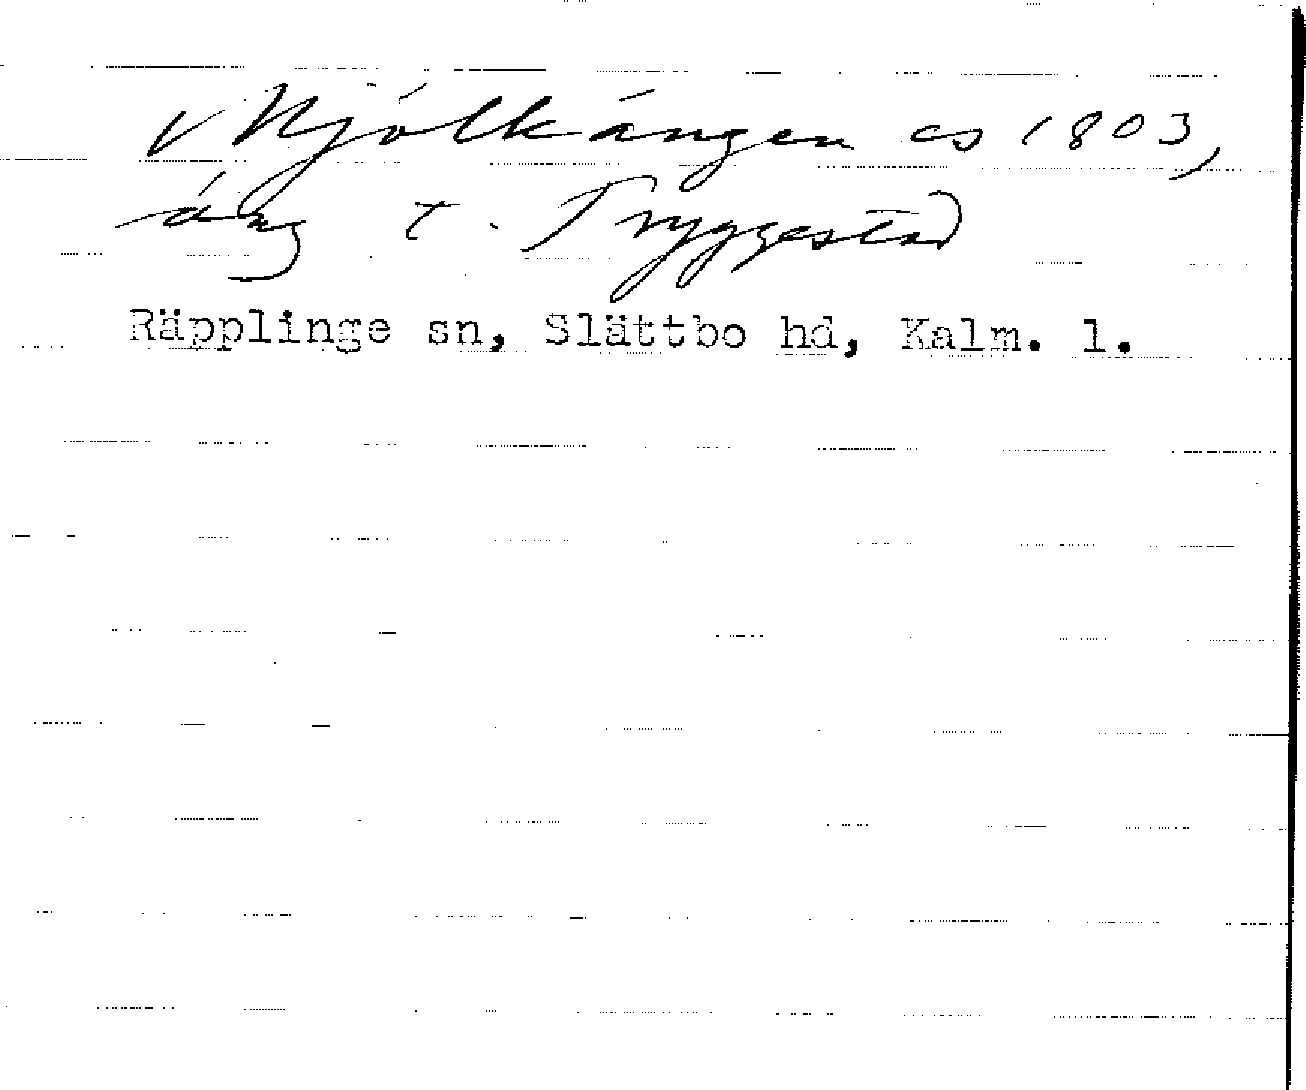 v Mjölkängen cs 1803,
äng t. Tryggestad
Räpplinge sn, Slättbo hd, Kalm. l.